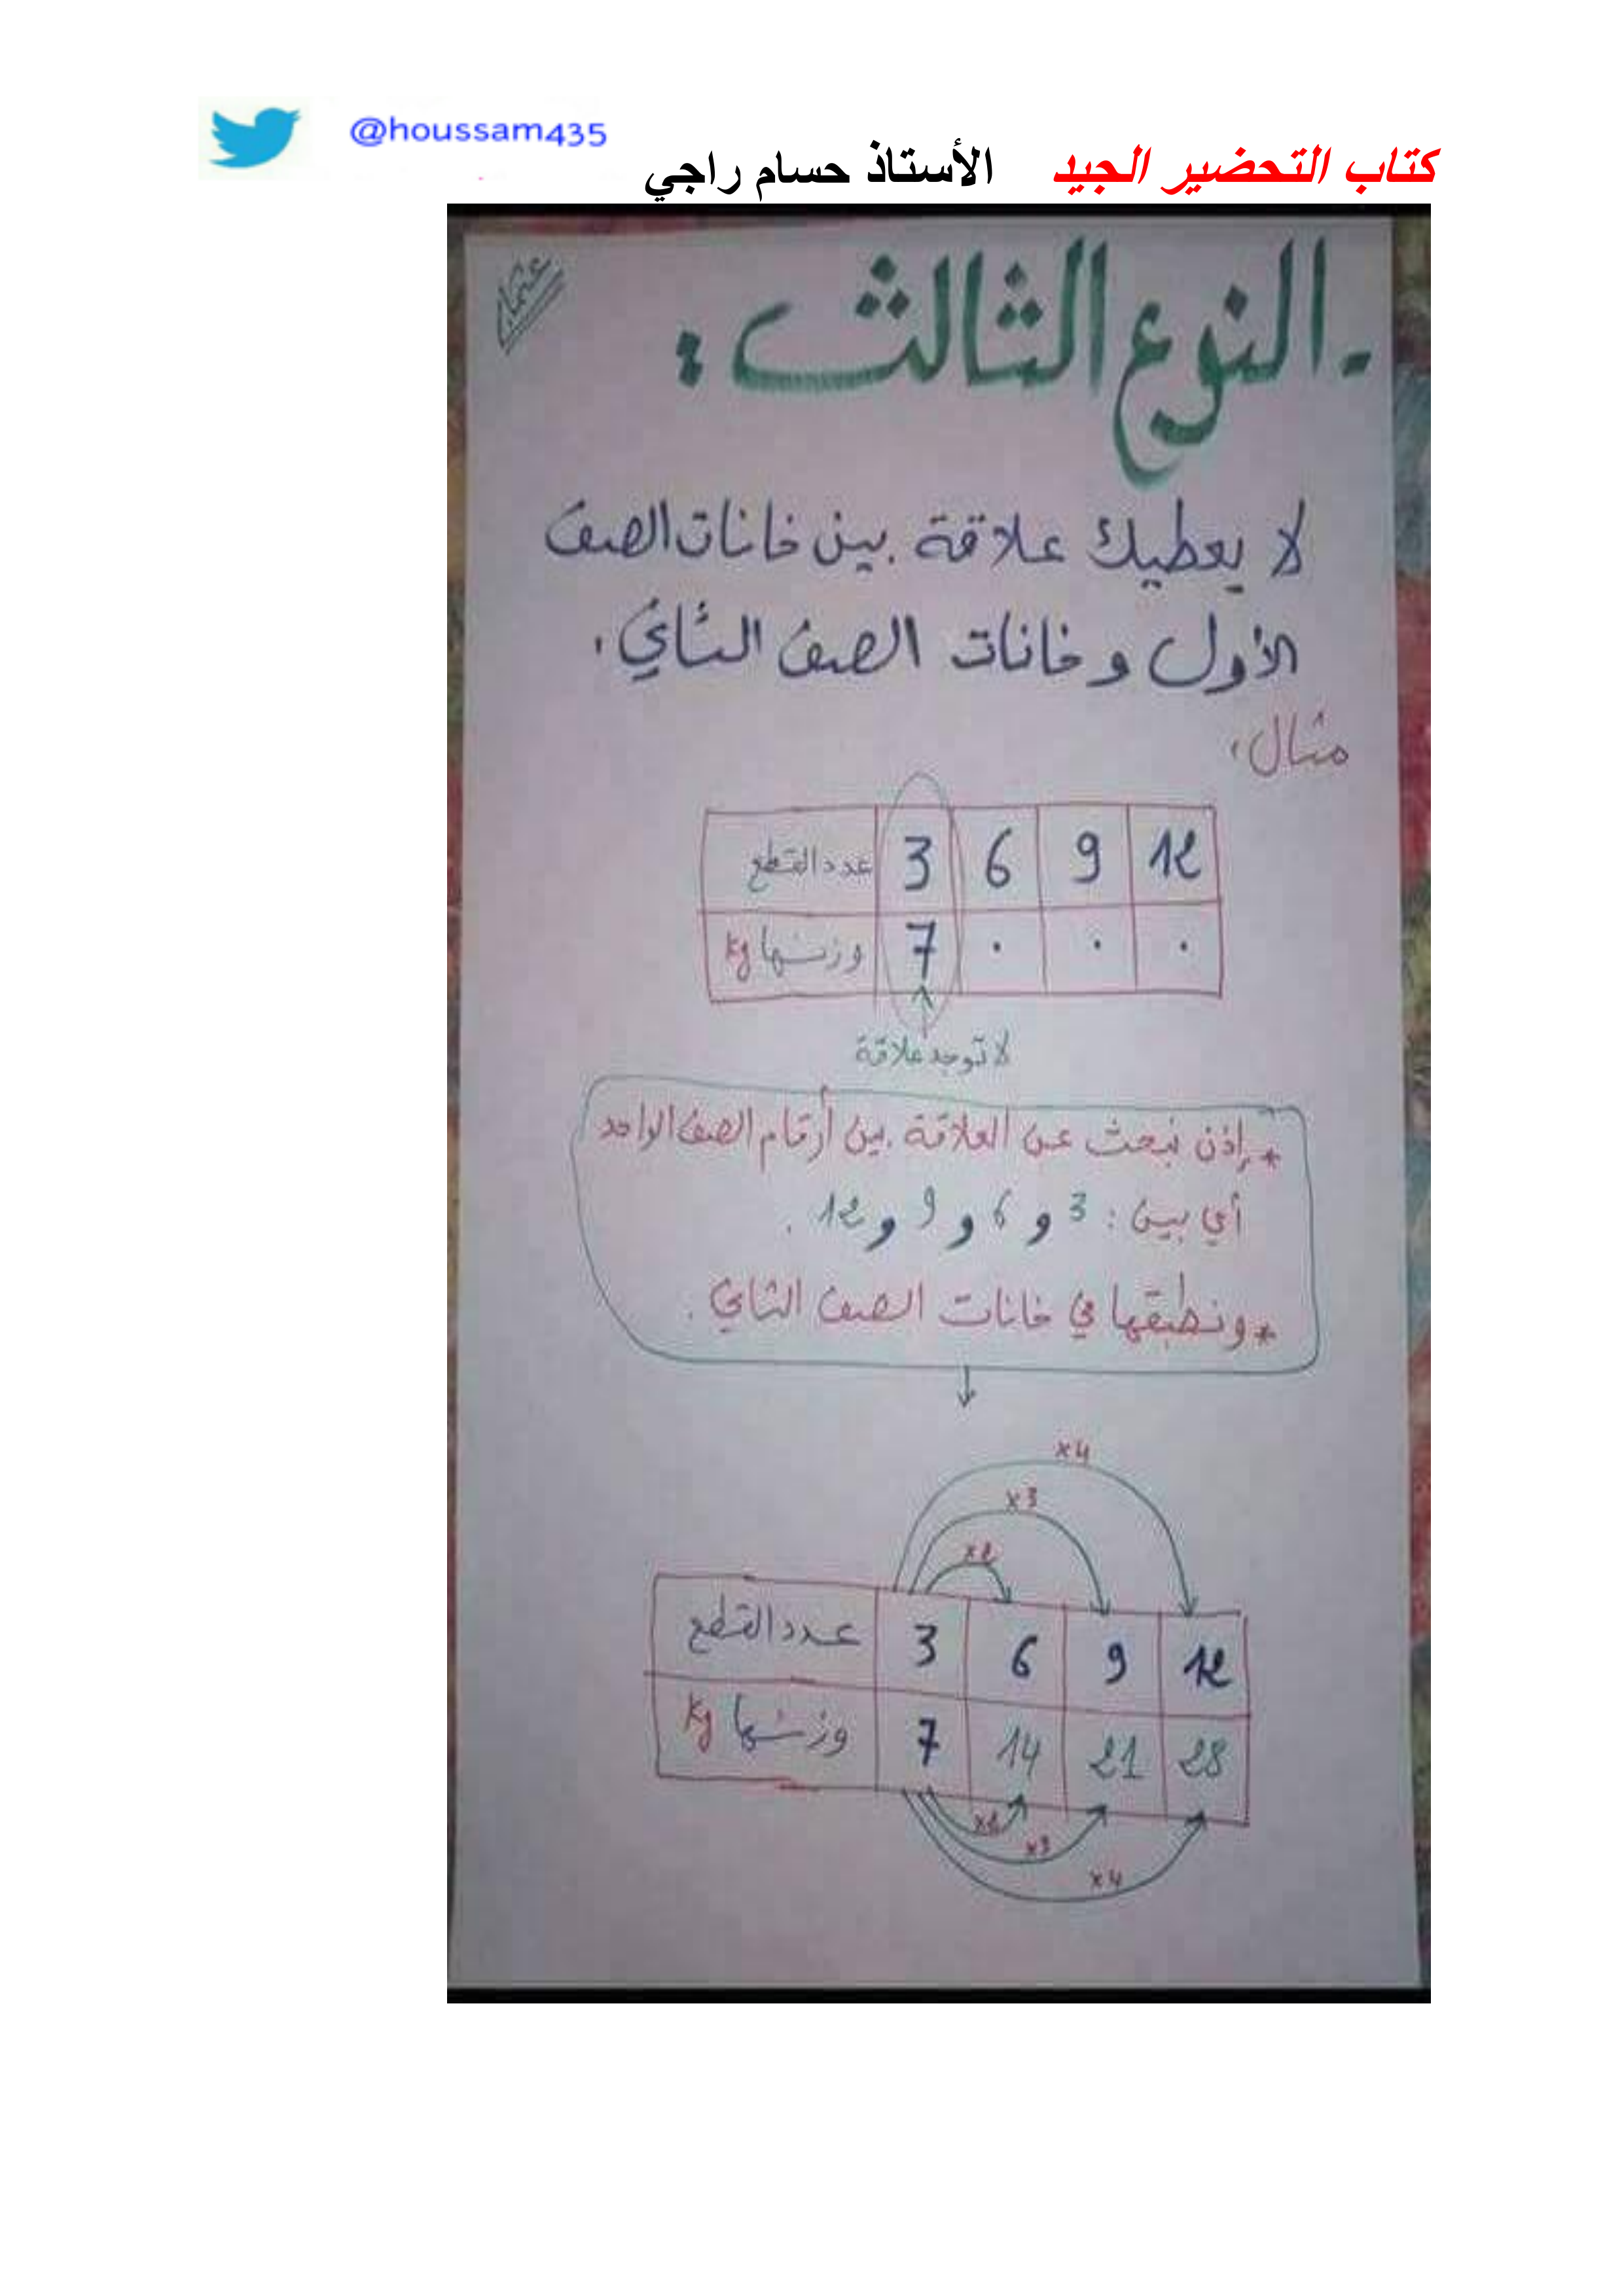 @houssam435
كتاب التحضير الجيد الأستاذ حسام راجي
- النوع الثالث :
لا يعطيك علاقة بين خانات الصف
الأول و خانات الصف الثاني.
مثال:
عدد القطع 3 6 9 12
وزنها kg 7 . . .
لا توجد علاقة
* إذن نبحث عن العلاقة بين أرقام الصف الواحد
أي بين : 3 و 6 و 9 و 12 .
* ونطبقها في خانات الصف الثاني .
x4
x3
x2
عدد القطع 3 6 9 12
وزنها kg 7 14 21 28
x2
x3
x4